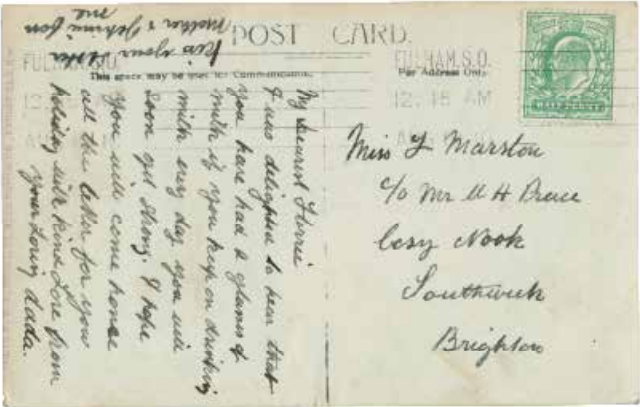 POST CARD.
This space may be used for Communication.
For Address Only.
FULHAM.S.O.
12.15 AM
HALFPENNY
My dearest Florrie
I was delighted to hear that
you have had a glass of
milk if you keep on drinking
milk every day you will
soon get strong. I hope
you will come home
all the better for your
holiday with kind love from
your loving dada.
Kiss your
mother & Johnnie for
me
Miss F Marston
c/o Mr H Bruce
Cosy Nook
Southwick
Brighton